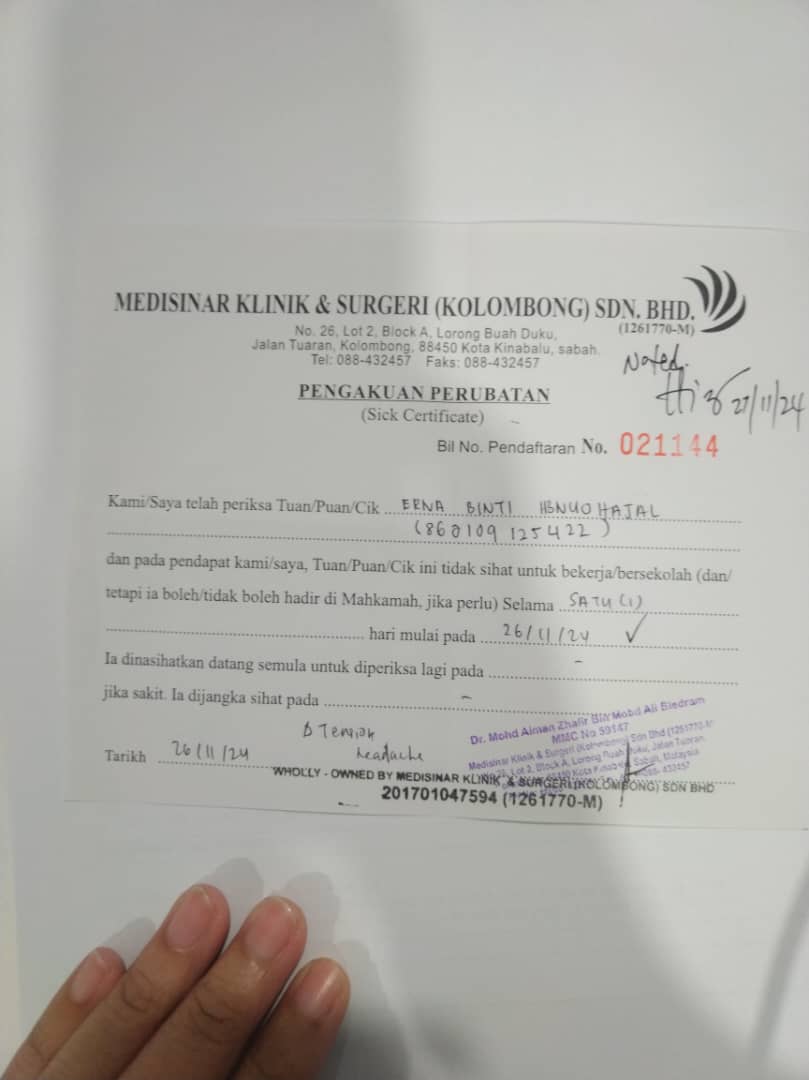 MEDISINAR KLINIK & SURGERI (KOLOMBONG) SDN. BHD.
(1261770-M)
No. 26, Lot 2, Block A, Lorong Buah Duku,
Jalan Tuaran, Kolombong, 88450 Kota Kinabalu, sabah.
Tel: 088-432457 Faks: 088-432457
Noted.
27/11/24
PENGAKUAN PERUBATAN
(Sick Certificate)
Bil No. Pendaftaran No. 021144
Kami/Saya telah periksa Tuan/Puan/Cik ERNA BINTI IBNUOHAJAL
(860109125422)
dan pada pendapat kami/saya, Tuan/Puan/Cik ini tidak sihat untuk bekerja/bersekolah (dan/
tetapi ia boleh/tidak boleh hadir di Mahkamah, jika perlu) Selama SATU (1)
hari mulai pada 26/11/24 ✓
Ia dinasihatkan datang semula untuk diperiksa lagi pada -
jika sakit. Ia dijangka sihat pada -
Tension
headache
Tarikh 26/11/24
Dr. Mohd Aiman Zhafir Bin Mohd Ali
MMC No 59147
Medisinar Klinik & Surgeri (Kolombong) Sdn Bhd (1261770-M)
WHOLLY - OWNED BY MEDISINAR KLINIK & SURGERI (KOLOMBONG) SDN BHD
201701047594 (1261770-M)